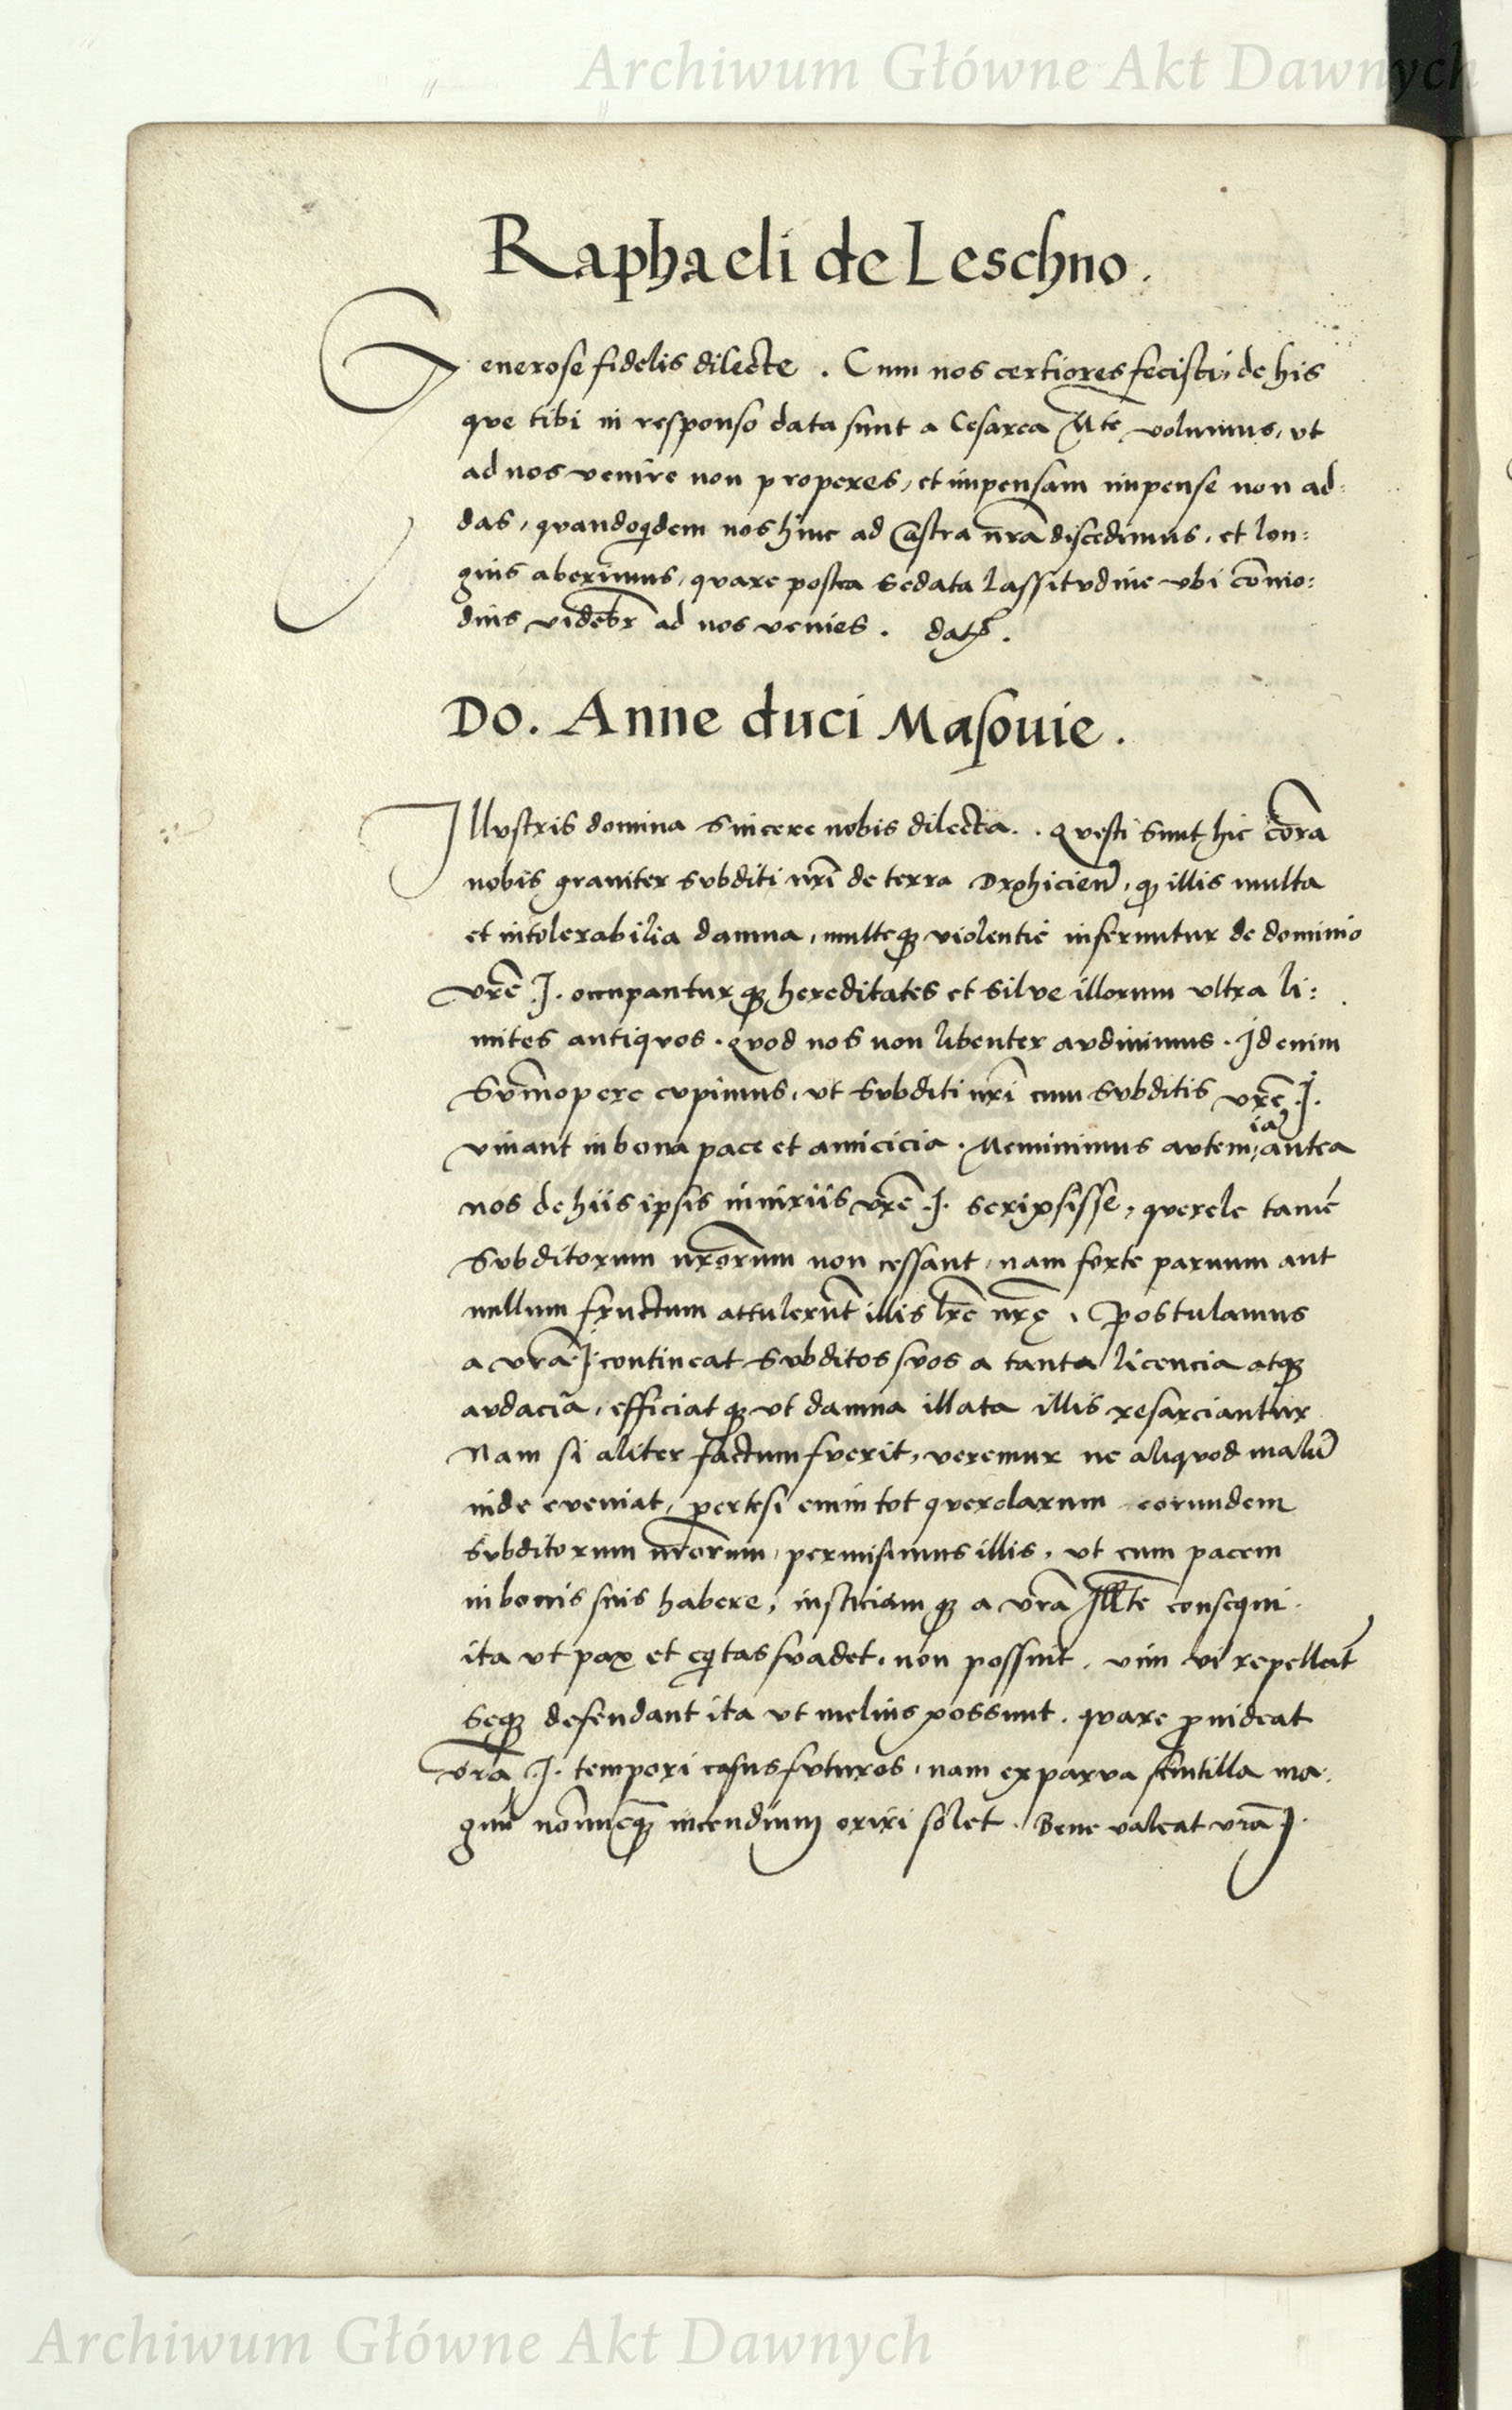 Archiwum Główne Akt Dawnych
Raphaeli de Leschno.
Generose fidelis dilecte. Cum nos certiores fecisti, de his
que tibi in responso data sunt a Cesarea Mte volumus, vt
ad nos venire non properes, et impensam impense non ad:
das, quandoqdem nos hinc ad castra nrā discedimus, et lon:
gius aberimus, quare postea sedata lassitudine vbi cōmo:
dius videbr ad nos venies. dat̄.
Do. Anne duci Masouie.
Illustris domina sincere nobis dilecta. Questi sunt hic corā
nobis grauiter subditi nri de terra Drohicien, q illis multa
et intolerabilia damna, multeqz violentie inferuntur de dominio
vrē .I. occupanturqz hereditates et silve illorum vltra li:
mites antiquos. Quod nos non libenter audiuimus. Id enim
summopere cupimus, vt subditi nri cum subditis vrē .I.
viuant in bona pace et amicicia. Meminimus autem, iā antea
nos de hiis ipsis iniuriis vrē .I. scripsisse, querele tamē
subditorum nrorum non cessant, nam forte paruum aut
nullum fructum attulerūt illis lrē nrę. Postulamus
a vrā .I. contineat subditos suos a tanta licencia atqz
audaciā, efficiatqz vt damna illata illis resarciantur
Nam si aliter factum fuerit, veremur ne aliquod malū
inde eveniat, pertesi enim tot querelarum eorundem
subditorum nrorum, permisimus illis, vt cum pacem
in bonis suis habere, insticiamqz a vrā Illte consequi
ita vt pax et eqitas suadet, non possint, vim vi repellant
seqz defendant ita vt melius possunt. quare prouideat
vrā .I. tempori casus futuros, nam ex parva scintilla ma:
gnū nonnunqz incendium oriri solet. Bene valeat vrā I.
Archiwum Główne Akt Dawnych